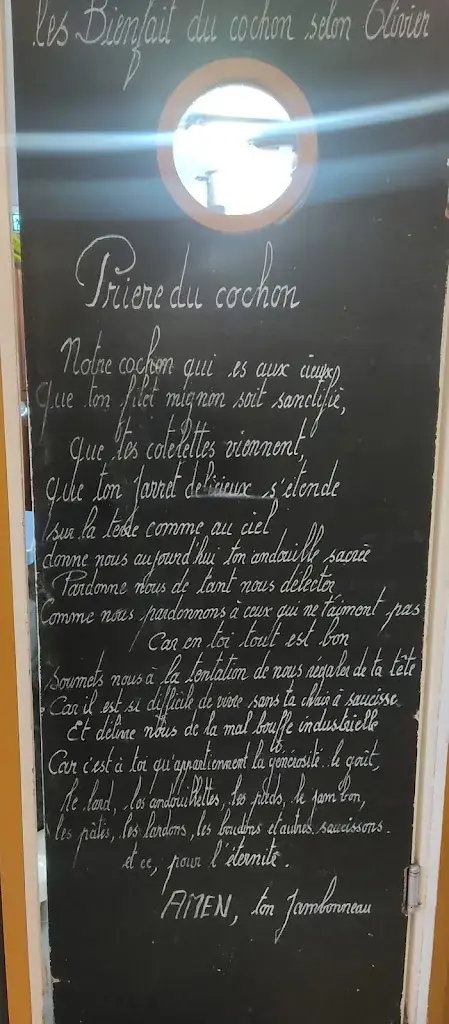 les Bienfait du cochon selon Olivier
Priere du cochon
Notre cochon qui es aux cieux,
Que ton filet mignon soit sanctifié,
Que tes cotelettes viennent,
Que ton jarret delicieux s'étende
sur la terre comme au ciel
donne nous aujourd'hui ton andouille sacrée
Pardonne nous de tant nous délecter
Comme nous pardonnons à ceux qui ne t'aiment pas
Car en toi tout est bon
Soumets nous à la tentation de nous régaler de ta tête
Car il est si difficile de vivre sans ta chair à saucisse
Et délivre nous de la mal bouffe industrielle
Car c'est à toi qu'appartiennent la générosité. le goût,
le lard, les andouillettes, les pieds, le jambon,
les pâtés, les lardons, les boudins et autres saucissons.
et ce, pour l'éternité.
AMEN, ton Jambonneau